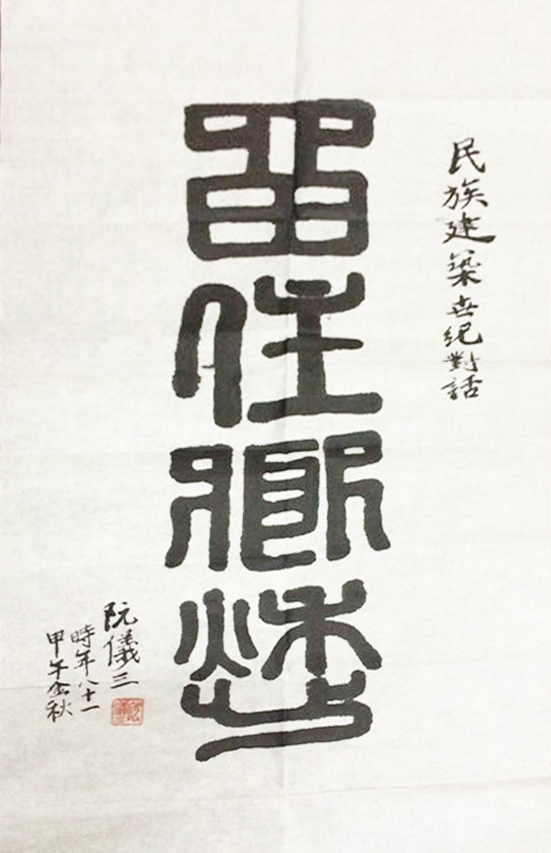 民族建築世紀對話
留住鄉愁
阮儀三
時年八十一
甲午金秋